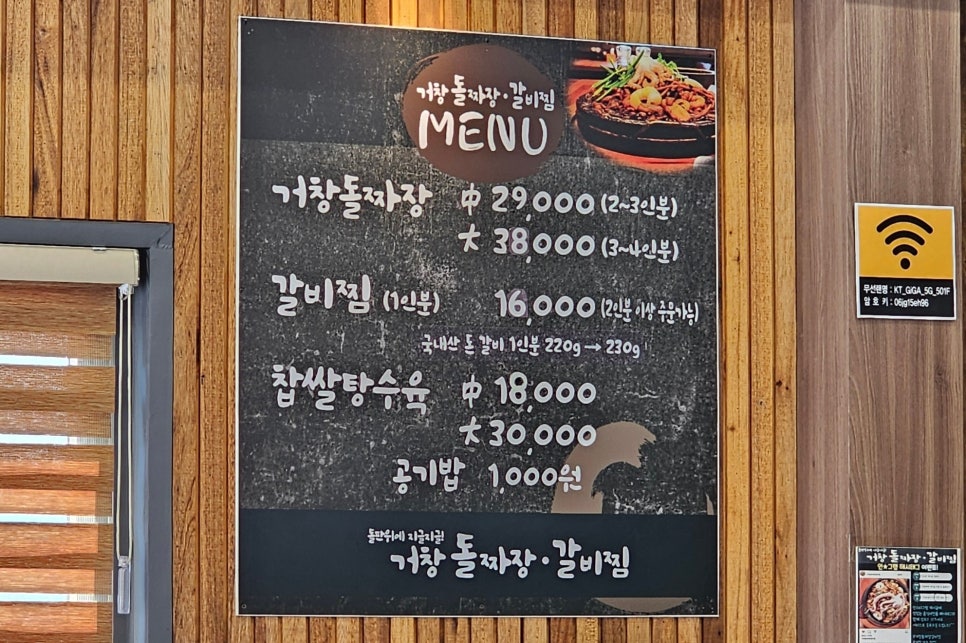 거창 돌짜장·갈비찜
MENU
거창돌짜장 中 29,000 (2~3인분)
大 38,000 (3~4인분)
갈비찜 (1인분) 16,000 (2인분 이상 주문가능)
국내산 돈 갈비 1인분 220g → 230g
찹쌀탕수육 中 18,000
大 30,000
공기밥 1,000원
돌판위에 지글지글!
거창 돌짜장·갈비찜
무선랜명 : KT_GiGA_5G_501F
암 호 키 : 06jg15eh96
거창 돌짜장·갈비찜
인★그램 해시태그 이벤트!